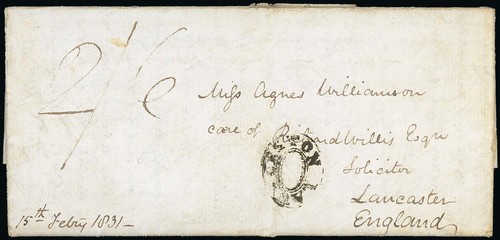 2/6
Miss Agnes Williamson
care of Richard Willis Esqr
Solicitor
Lancaster
England
15th Febry 1831-